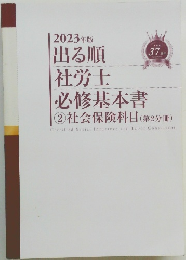 2023年版
出る順
社労士
必修基本書
②社会保険科目(第2分冊)
37